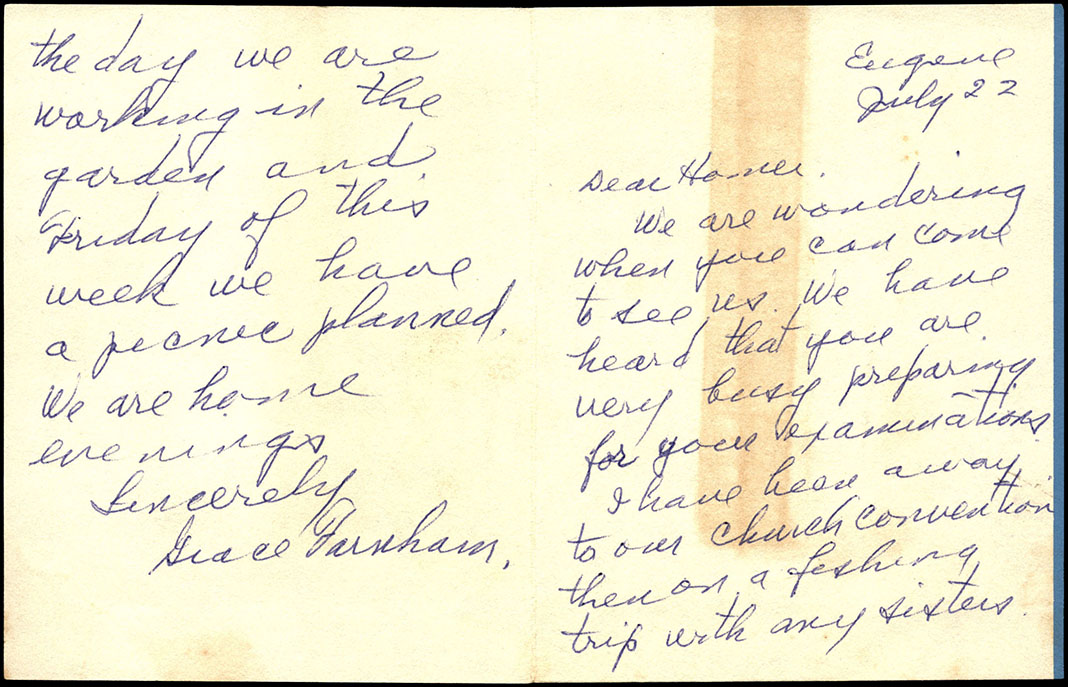 Eugene
July 22
Dear Homer.
We are wondering
when you can come
to see us. We have
heard that you are
very busy preparing
for your examinations.
I have been away
to our church convention
then on a fishing
trip with my sisters.
the day we are
working in the
garden and
Friday of this
week we have
a picnic planned.
We are home
evenings
Sincerely
Grace Farnham.